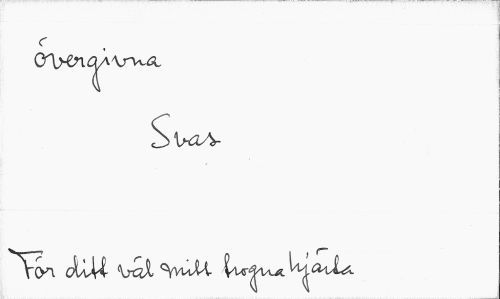 övergivna
Svas
För ditt väl mitt trogna hjärta